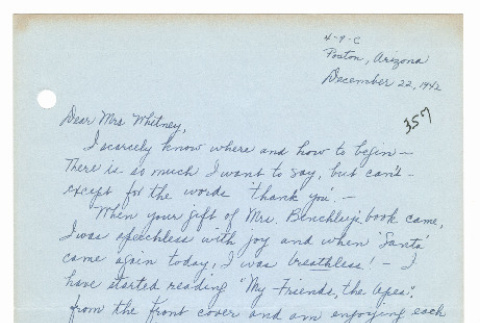 4-9-C
Poston, Arizona
December 22, 1942
357
Dear Mrs Whitney,
I scarcely know where and how to begin —
There is so much I want to say, but can't —
except for the words 'thank you'. —
When your gift of Mrs. Benchley's book came,
I was speechless with joy and when 'Santa'
came again today, I was breathless! — I
have started reading "My Friends, the Apes",
from the front cover and am enjoying each